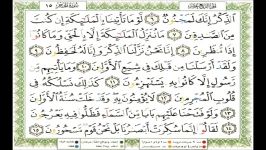 ١٥
ٱلذِّكْرُ إِنَّكَ لَمَجْنُونٌ ٦ لَّوْ مَا تَأْتِينَا بِٱلْمَلَٰٓئِكَةِ إِن كُنتَ
مِنَ ٱلصَّٰدِقِينَ ٧ مَا نُنَزِّلُ ٱلْمَلَٰٓئِكَةَ إِلَّا بِٱلْحَقِّ وَمَا كَانُوٓا۟
إِذًا مُّنظَرِينَ ٨ إِنَّا نَحْنُ نَزَّلْنَا ٱلذِّكْرَ وَإِنَّا لَهُۥ لَحَٰفِظُونَ ٩
وَلَقَدْ أَرْسَلْنَا مِن قَبْلِكَ فِى شِيَعِ ٱلْأَوَّلِينَ ١٠ وَمَا يَأْتِيهِم مِّن
رَّسُولٍ إِلَّا كَانُوا۟ بِهِۦ يَسْتَهْزِءُونَ ١١ كَذَٰلِكَ نَسْلُكُهُۥ فِى
قُلُوبِ ٱلْمُجْرِمِينَ ١٢ لَا يُؤْمِنُونَ بِهِۦ وَقَدْ خَلَتْ سُنَّةُ ٱلْأَوَّلِينَ
١٣ وَلَوْ فَتَحْنَا عَلَيْهِم بَابًا مِّنَ ٱلسَّمَآءِ فَظَلُّوا۟ فِيهِ يَعْرُجُونَ
١٤ لَقَالُوٓا۟ إِنَّمَا سُكِّرَتْ أَبْصَٰرُنَا بَلْ نَحْنُ قَوْمٌ مَّسْحُورُونَ ١٥